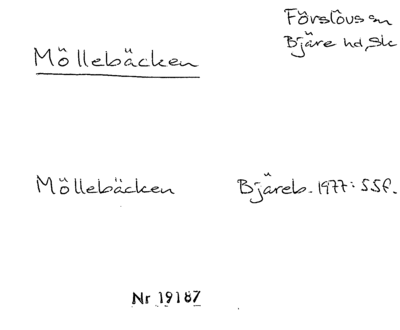 Förslövs sn
Möllebäcken
Bjäre hd, Sk
Möllebäcken Bjäreb. 1977: 55f.
Nr 19187